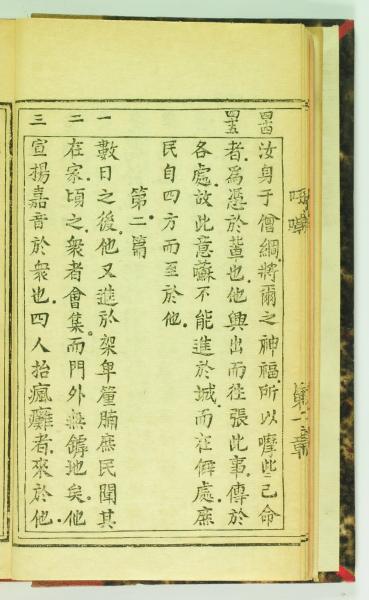 第二章
四四 汝身于僧綱將爾之神福所以嚤此己命
四五 者爲憑於輩也他興出而徃張此事傳於
各處故此意囌不能進於城而在僻處庶
民自四方而至於他
第二篇
一 數日之後他又進於架卑釐腩庶民聞其
二 在家頃之衆者會集而門外無罅地矣他
三 宣揚嘉音於衆也四人抬瘋癱者來於他